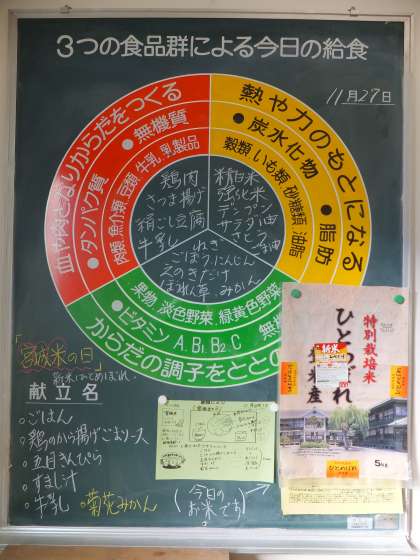 3つの食品群による今日の給食
11月27日
血や肉となりからだをつくる
●タンパク質 ●無機質
肉類 魚介類 豆類 牛乳 乳製品
熱や力のもとになる
●炭水化物 ●脂肪
穀類 いも類 砂糖類 油脂
鶏肉
さつま揚げ
絹ごし豆腐
牛乳
精白米
強化米
デンプン
サラダ油
さとう
ごま油
ねぎ
ごぼう にんじん
えのきだけ
ほうれん草 みかん
果物 淡色野菜 緑黄色野菜
●ビタミン A, B₁, B₂ C
からだの調子をととの
「宮城米の日」
新米ひとめぼれ
献立名
○ごはん
○鶏のから揚げごまソース
○五目きんぴら
○すまし汁
○牛乳 ○菊花みかん
(今日の
お米です)
特別栽培米
ひとめぼれ
新米
ひとめぼれ
5kg